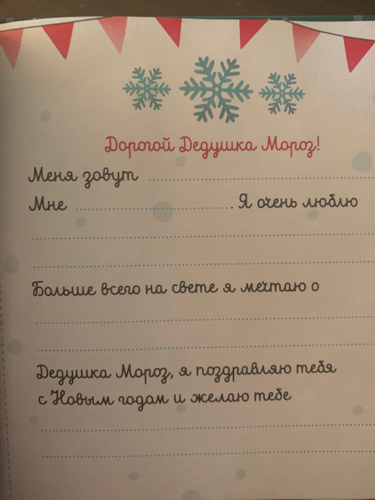 Дорогой Дедушка Мороз!
Меня зовут
Мне . Я очень люблю
Больше всего на свете я мечтаю о
Дедушка Мороз, я поздравляю тебя
с Новым годом и желаю тебе